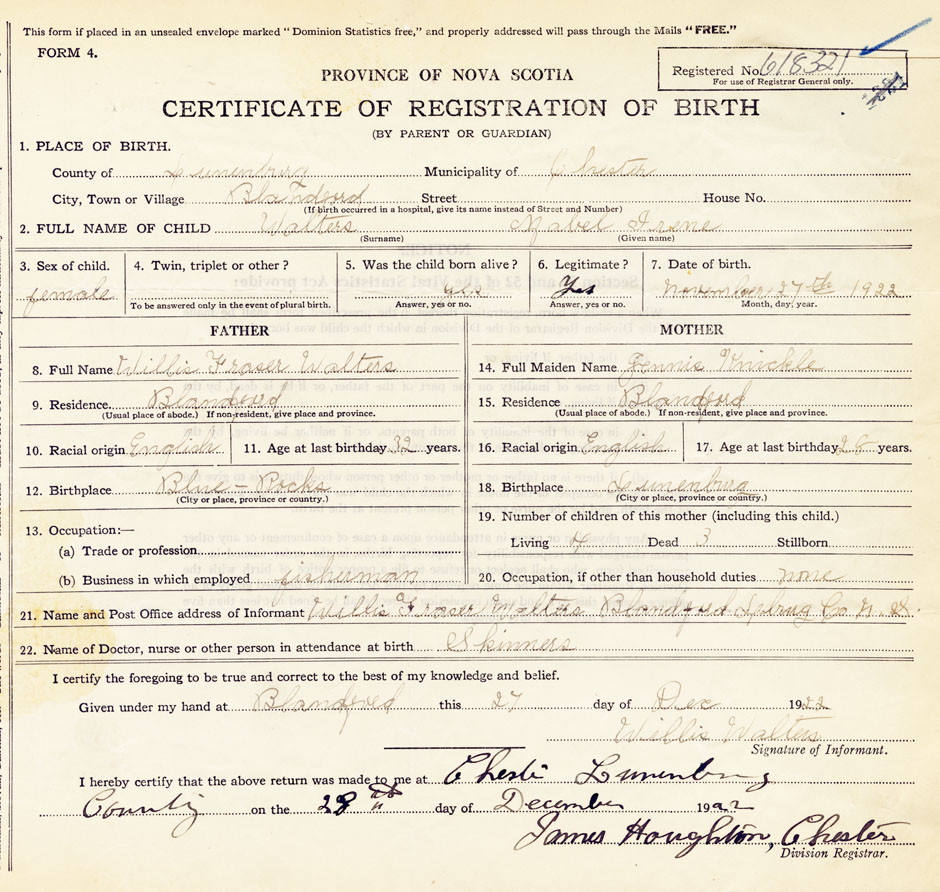 This form if placed in an unsealed envelope marked "Dominion Statistics free," and properly addressed will pass through the Mails "FREE."
FORM 4.
Registered No. 618321
For use of Registrar General only.
PROVINCE OF NOVA SCOTIA
CERTIFICATE OF REGISTRATION OF BIRTH
(BY PARENT OR GUARDIAN)
1. PLACE OF BIRTH.
County of Lunenburg Municipality of Chester
City, Town or Village Blandford Street House No.
(If birth occurred in a hospital, give its name instead of Street and Number)
2. FULL NAME OF CHILD Walters Mabel Irene
(Surname) (Given name)
3. Sex of child. 4. Twin, triplet or other? 5. Was the child born alive? 6. Legitimate? 7. Date of birth.
female yes Yes November 27th 1922
To be answered only in the event of plural birth. Answer, yes or no. Answer, yes or no. Month, day, year.
FATHER
8. Full Name Willis Fraser Walters
9. Residence. Blandford
(Usual place of abode.) If non-resident, give place and province.
10. Racial origin English 11. Age at last birthday 32 years.
12. Birthplace Blue-Rocks
(City or place, province or country.)
13. Occupation:—
(a) Trade or profession
(b) Business in which employed fisherman
MOTHER
14. Full Maiden Name Jennie Knickle
15. Residence Blandford
(Usual place of abode.) If non-resident, give place and province.
16. Racial origin English 17. Age at last birthday 28 years.
18. Birthplace Lunenburg
(City or place, province or country.)
19. Number of children of this mother (including this child.)
Living 4 Dead 3 Stillborn
20. Occupation, if other than household duties none
21. Name and Post Office address of Informant Willis Fraser Walters Blandford Lbrug Co. N. S.
22. Name of Doctor, nurse or other person in attendance at birth Skinners
I certify the foregoing to be true and correct to the best of my knowledge and belief.
Given under my hand at Blandford this 27 day of Dec 1922
Willis Walters
Signature of Informant.
I hereby certify that the above return was made to me at Chester Lunenburg
County on the 28th day of December 1922
James Houghton, Chester
Division Registrar.